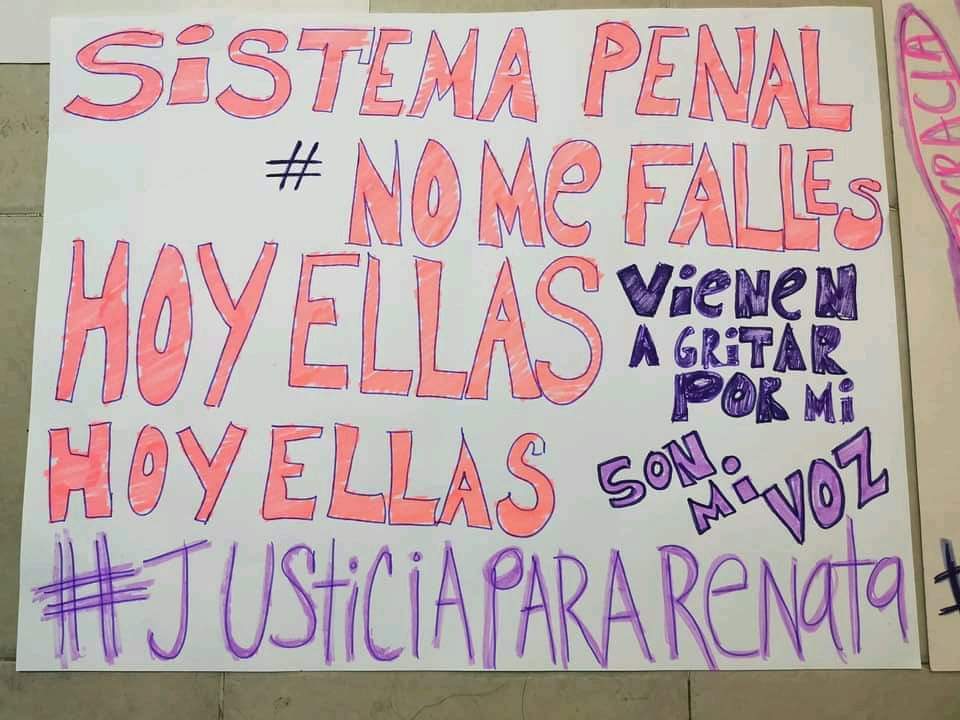 SiSTEMA PENAL
# NO Me FALLES
HOY ELLAS VieNeN
A GRiTAR
POR Mi
HOY ELLAS SON
Mi VOZ
#JUSticiAPARARenata